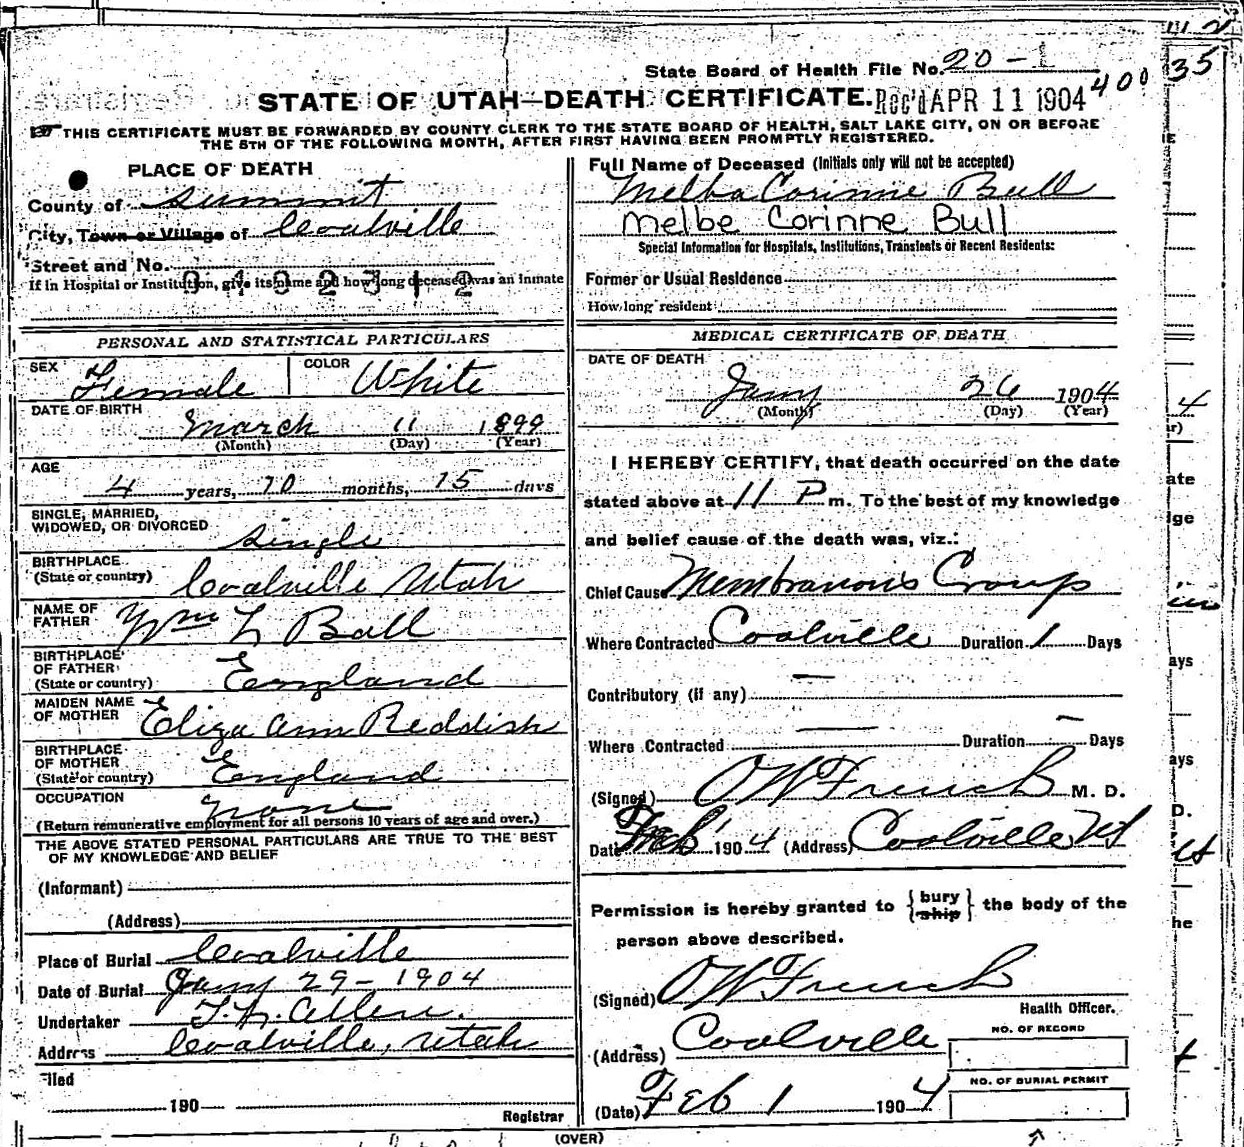 State Board of Health File No. 20-1
400
35
STATE OF UTAH—DEATH CERTIFICATE. REC'D APR 11 1904
THIS CERTIFICATE MUST BE FORWARDED BY COUNTY CLERK TO THE STATE BOARD OF HEALTH, SALT LAKE CITY, ON OR BEFORE
THE 5TH OF THE FOLLOWING MONTH, AFTER FIRST HAVING BEEN PROMPTLY REGISTERED.
PLACE OF DEATH
County of Summit
City, Town or Village of Coalville
Street and No.
If in Hospital or Institution, give its name and how long deceased was an inmate
Full Name of Deceased (Initials only will not be accepted)
Melba Corinne Bull
Melbe Corinne Bull
Special Information for Hospitals, Institutions, Transients or Recent Residents:
Former or Usual Residence
How long resident
PERSONAL AND STATISTICAL PARTICULARS
SEX Female COLOR White
DATE OF BIRTH
March 11 1899
(Month) (Day) (Year)
AGE
4 years, 10 months, 15 days
SINGLE, MARRIED,
WIDOWED, OR DIVORCED Single
BIRTHPLACE
(State or country) Coalville Utah
NAME OF
FATHER Wm L Bull
BIRTHPLACE
OF FATHER
(State or country) England
MAIDEN NAME
OF MOTHER Eliza Ann Reddish
BIRTHPLACE
OF MOTHER
(State or country) England
OCCUPATION none
(Return remunerative employment for all persons 10 years of age and over.)
THE ABOVE STATED PERSONAL PARTICULARS ARE TRUE TO THE BEST
OF MY KNOWLEDGE AND BELIEF
(Informant)
(Address)
Place of Burial Coalville
Date of Burial Jany 29-1904
Undertaker T. L. Allen.
Address Coalville, Utah
Filed
190
Registrar
MEDICAL CERTIFICATE OF DEATH
DATE OF DEATH
Jany 26 1904
(Month) (Day) (Year)
I HEREBY CERTIFY, that death occurred on the date
stated above at 11 P m. To the best of my knowledge
and belief cause of the death was, viz.:
Chief Cause Membranous Croup
Where Contracted Coalville Duration 1 Days
Contributory (if any) —
Where Contracted — Duration — Days
(Signed) O W French M. D.
Date 1904 (Address) Coalville Ut
Permission is hereby granted to {bury ship} the body of the
person above described.
(Signed) O W French
Health Officer.
(Address) Coalville
NO. OF RECORD
NO. OF BURIAL PERMIT
(Date) Feb 1 1904
(OVER)